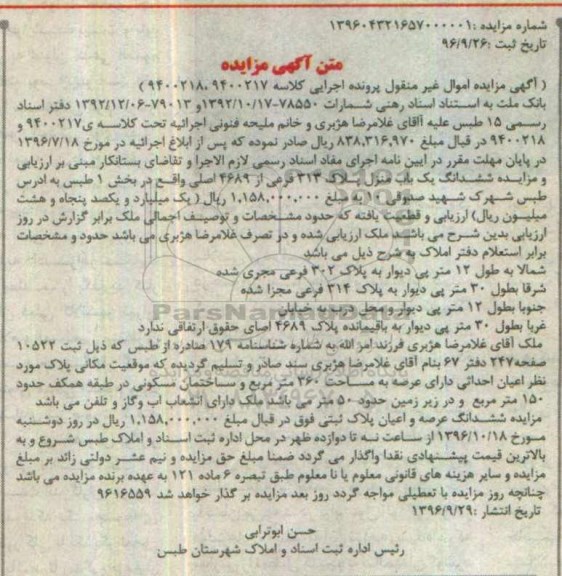 شماره مزایده :۱۳۹۶۰۴۳۲۱۶۵۷۰۰۰۰۰۱
تاریخ ثبت :۹۶/۹/۲۶
متن آگهی مزایده
( آگهی مزایده اموال غیر منقول پرونده اجرایی کلاسه ۹۴۰۰۲۱۷ ،۹۴۰۰۲۱۸ )
بانک ملت به استناد اسناد رهنی شمارات ۷۸۵۵۰-۱۳۹۲/۱۰/۱۷ و ۷۹۰۱۳-۱۳۹۲/۱۲/۰۶ دفتر اسناد
رسمی ۱۵ طبس علیه آاقای غلامرضا هژبری و خانم ملیحه فنونی اجرائیه تحت کلاسه ی۹۴۰۰۲۱۷ و
۹۴۰۰۲۱۸ در قبال مبلغ ۸۳۸,۳۱۶,۹۷۰ ریال صادر نموده که پس از ابلاغ اجرائیه در مورخ ۱۳۹۶/۷/۱۸
در پایان مهلت مقرر در آیین نامه اجرای مفاد اسناد رسمی لازم الاجرا و تقاضای بستانکار مبنی بر ارزیابی
و مزایده ششدانگ یک باب منزل پلاک ۳۱۳ فرعی از ۴۶۸۹ اصلی واقع در بخش ۱ طبس به ادرس
طبس شهرک شهید صدوقی ۱۰ به مبلغ ۱,۱۵۸,۰۰۰,۰۰۰ ریال ( یک میلیارد و یکصد پنجاه و هشت
میلیون ریال) ارزیابی و قطعیت یافته که حدود مشخصات و توصیف اجمالی ملک برابر گزارش در روز
ارزیابی بدین شرح می باشد ملک ارزیابی شده و در تصرف غلامرضا هژبری می باشد حدود و مشخصات
برابر استعلام دفتر املاک به شرح ذیل می باشد
شمالا به طول ۱۲ متر پی دیوار به پلاک ۳۰۲ فرعی مجزی شده
شرقا بطول ۳۰ متر پی دیوار به پلاک ۳۱۴ فرعی مجزا شده
جنوبا بطول ۱۲ متر پی دیوار و محل درب به خیابان
غربا بطول ۳۰ متر پی دیوار به باقیمانده پلاک ۴۶۸۹ اصای حقوق ارتفاقی ندارد
ملک آقای غلامرضا هژبری فرزند امر الله به شماره شناسنامه ۱۷۹ صادره از طبس که ذیل ثبت ۱۰۵۲۲
صفحه۲۴۷ دفتر ۶۷ بنام آقای غلامرضا هژبری سند صادر و تسلیم گردیده که موقعیت مکانی پلاک مورد
نظر اعیان احداثی دارای عرصه به مساحت ۳۶۰ متر مربع و ساختمان مسکونی در طبقه همکف حدود
۱۵۰ متر مربع و در زیر زمین حدود ۵۰ متر می باشد ملک دارای انشعاب اب وگاز و تلفن می باشد
مزایده ششدانگ عرصه و اعیان پلاک ثبتی فوق در قبال مبلغ ۱,۱۵۸,۰۰۰,۰۰۰ ریال در روز دوشنبه
مورخ ۱۳۹۶/۱۰/۱۸ از ساعت نه تا دوازده ظهر در محل اداره ثبت اسناد و املاک طبس شروع و به
بالاترین قیمت پیشنهادی نقدا واگذار می گردد ضمنا مبلغ حق مزایده و نیم عشر دولتی زائد بر مبلغ
مزایده و سایر هزینه های قانونی معلوم یا نا معلوم طبق تبصره ۶ ماده ۱۲۱ به عهده برنده مزایده می باشد
چنانچه روز مزایده با تعطیلی مواجه گردد روز بعد مزایده بر گذار خواهد شد ۹۶۱۶۵۵۹
تاریخ انتشار :۱۳۹۶/۹/۲۹
حسن ابوترابی
رئیس اداره ثبت اسناد و املاک شهرستان طبس